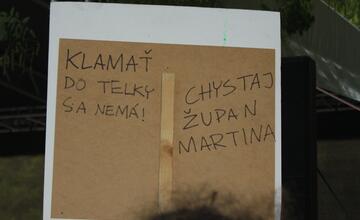 KLAMAŤ
DO TELKY
SA NEMÁ!
CHYSTAJ
ŽUPAN
MARTINA